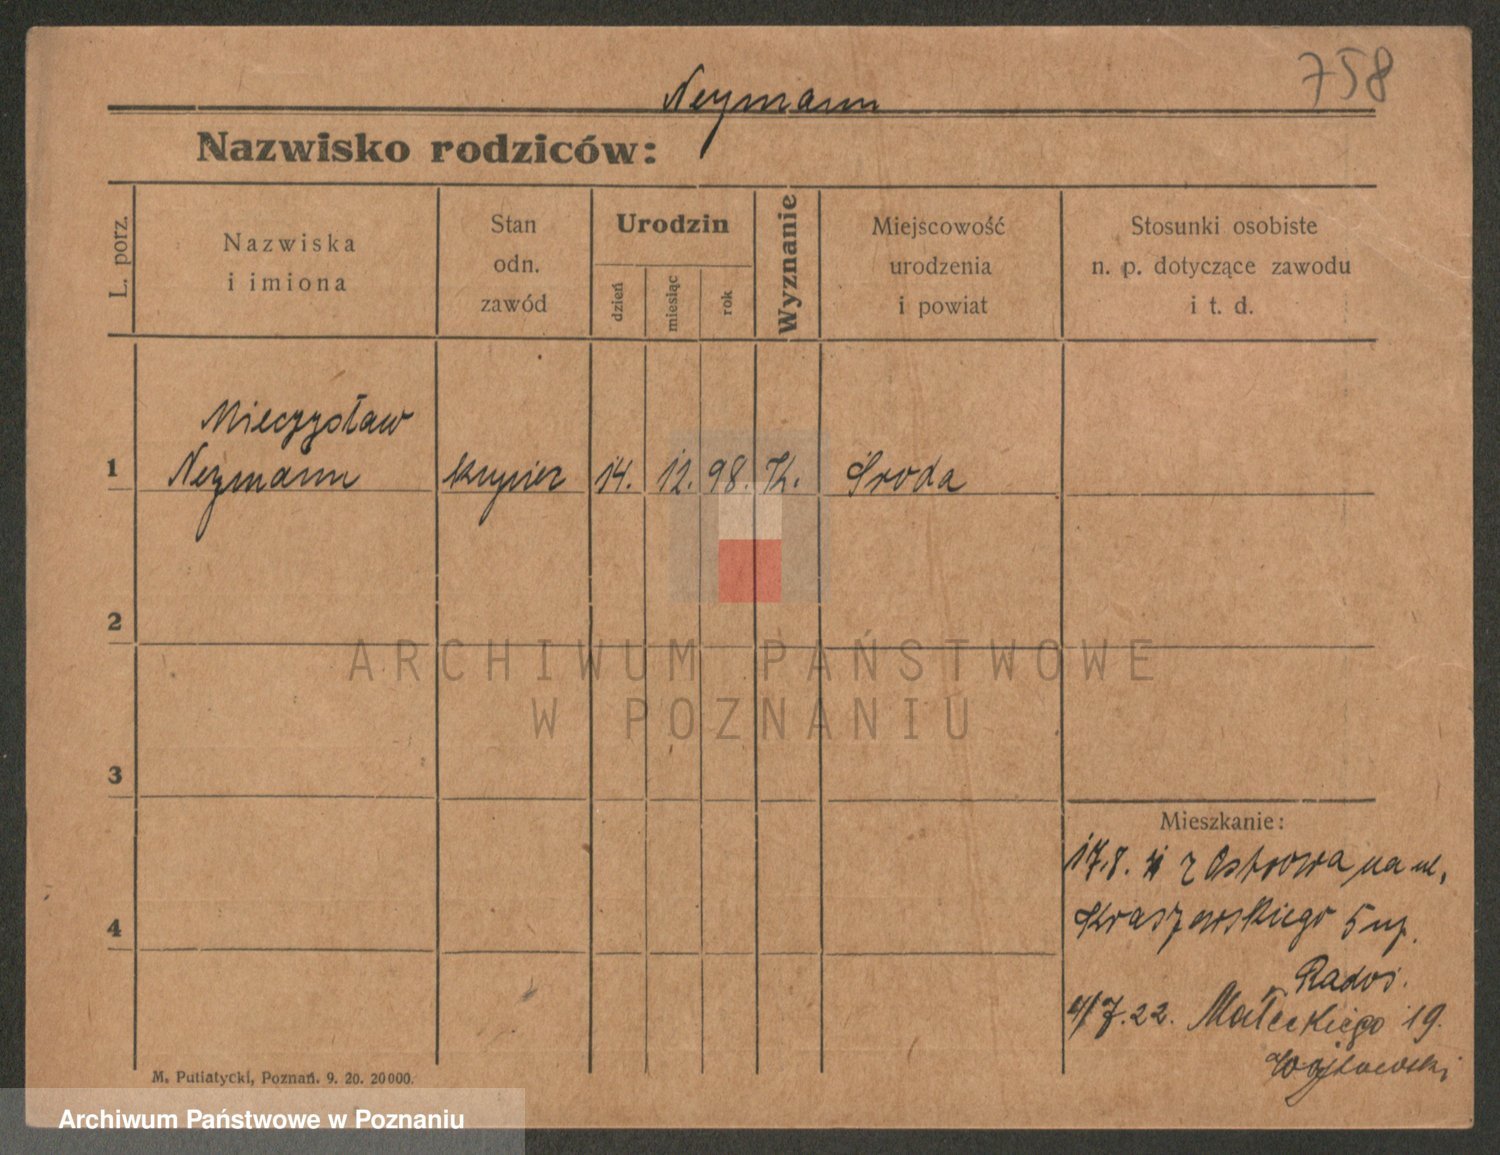 758
Neymann
Nazwisko rodziców:
L. porz.
Nazwiska
i imiona
Stan
odn.
zawód
Urodzin
dzień
miesiąc
rok
Wyznanie
Miejscowość
urodzenia
i powiat
Stosunki osobiste
n. p. dotyczące zawodu
i t. d.
Mieczysław
1 Neymann kupiec 14. 12. 98. K. Środa
2
3
4
Mieszkanie:
17.8. z Ostrowa na ul.
Kraszewskiego 5 up.
Rados.
4/7.22. Małeckiego 19.
Wojkowski
M. Putiatycki, Poznań. 9. 20. 20000.
ARCHIWUM PAŃSTWOWE
W POZNANIU
Archiwum Państwowe w Poznaniu